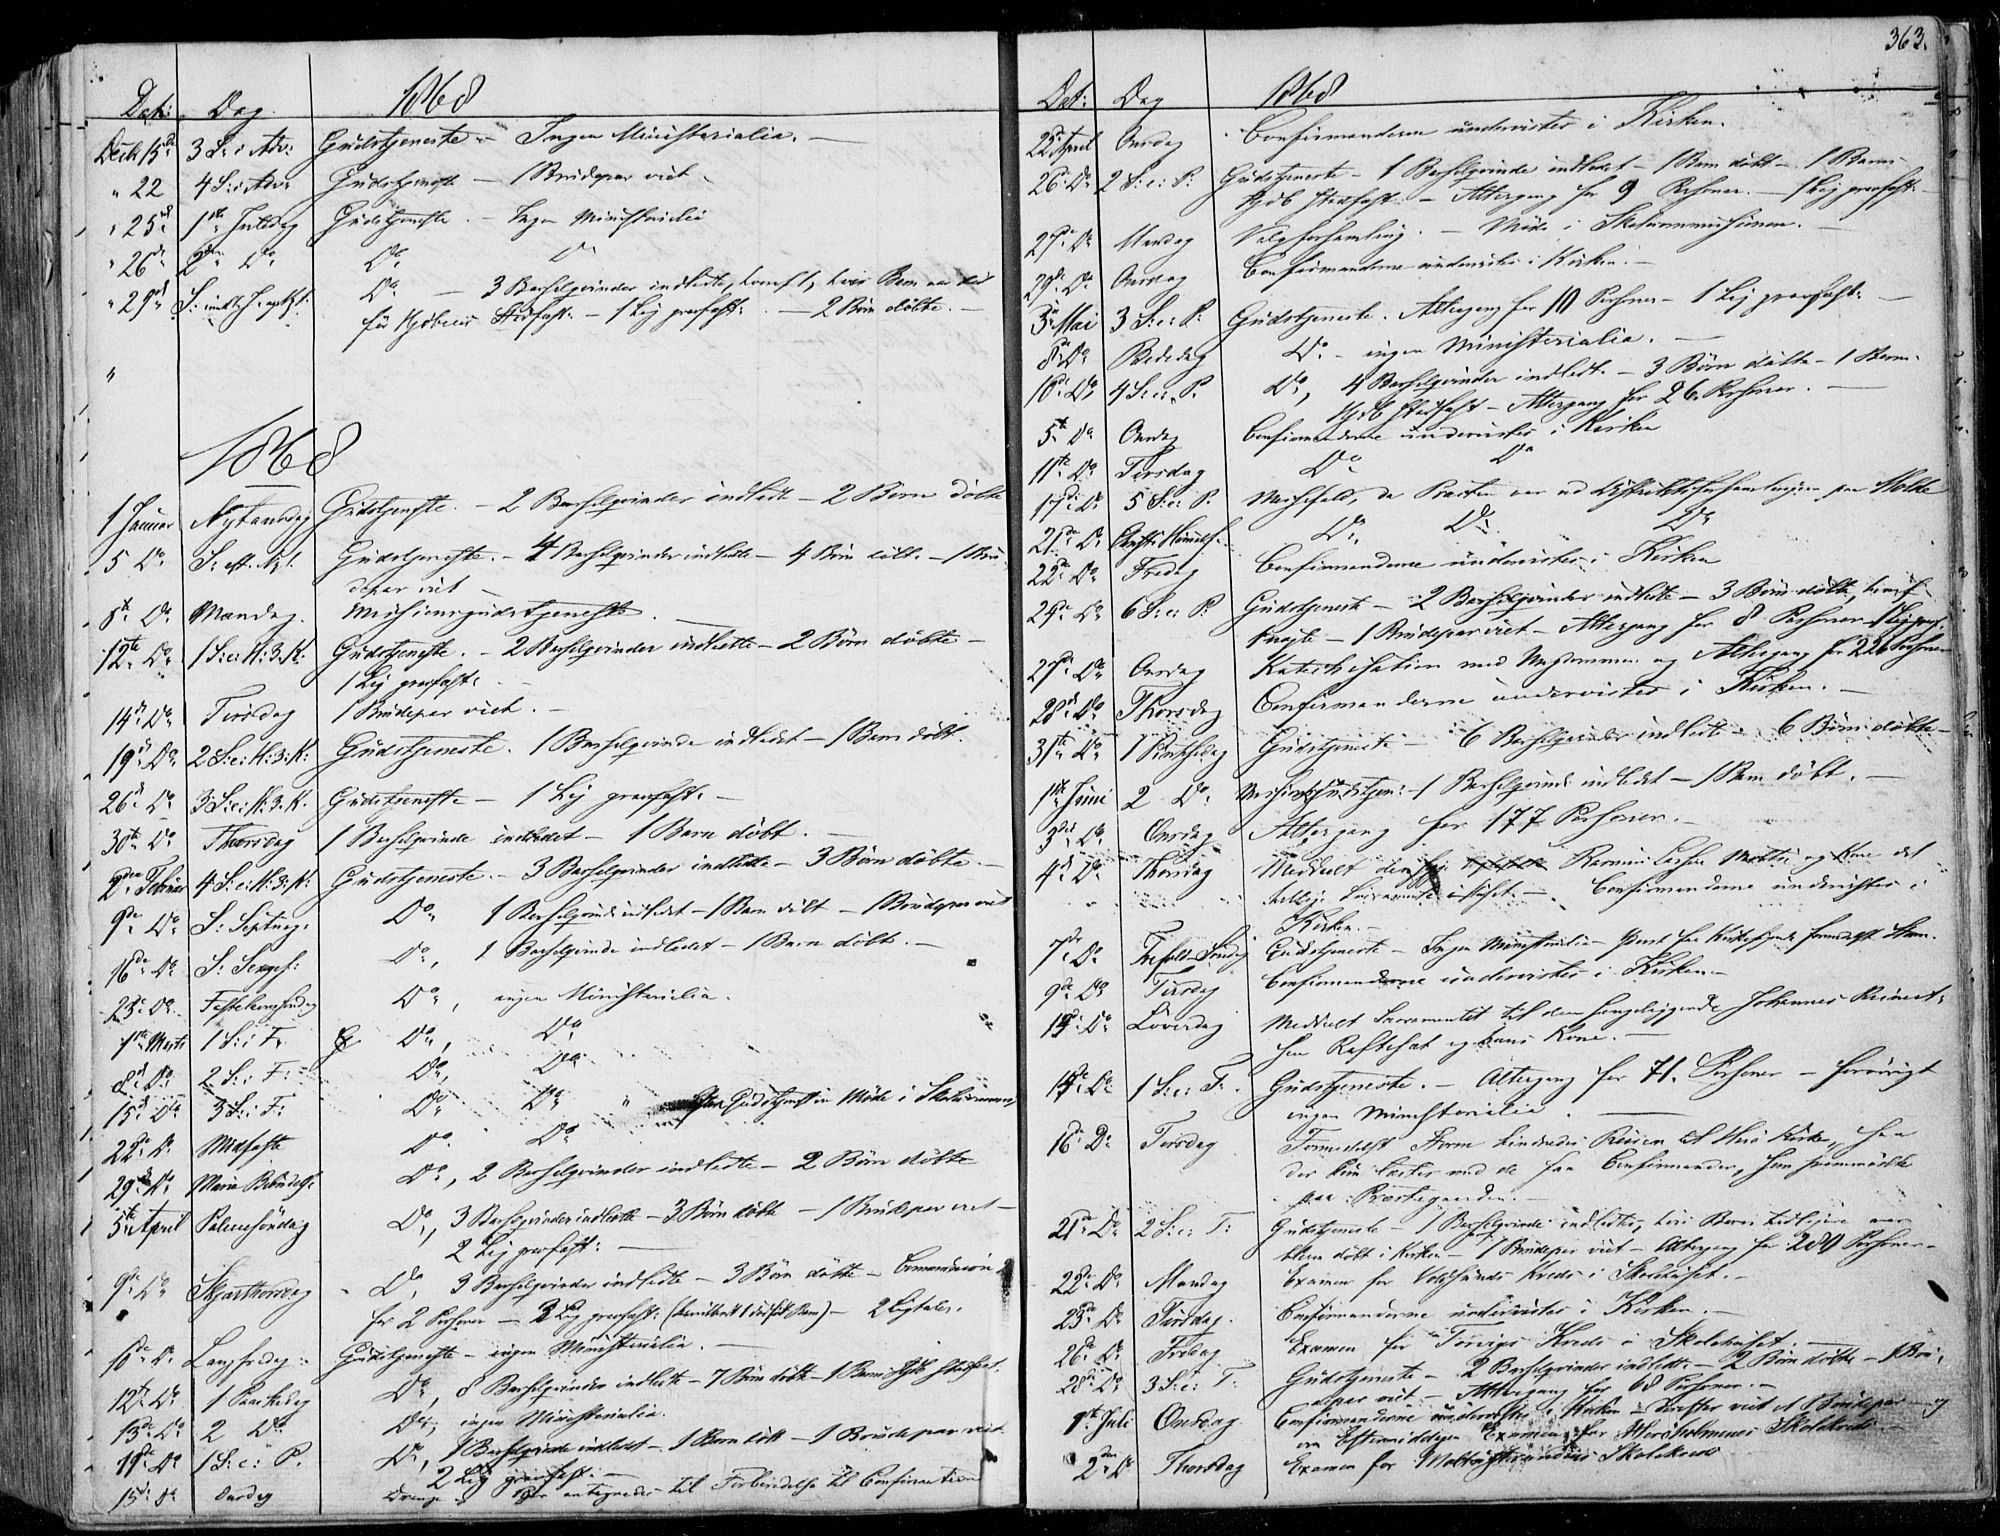 Dat: Dag 1868
Decb 15de 3 S: i Adv: Gudstjeneste - Ingen Ministerialia. -
" 22 4 S: i Adv: Gudstjeneste - 1 Brudepar viet -
" 25de 1ste Juledag Gudstjeneste. - Ingen Ministerialia
" 26de 2den Do Do Do
" 29de S: imell. J. og Nyt: Do - 3 Barselqvinder indledte,
1 Lig graafæst: - 2 Børn døbte. -
"
1868
1 Januar Nytaarsdag Gudstjeneste. - 2 Barselqvinder indledte - 2 Børn døbte
5 Do S: eft. Nyt. Gudstjeneste. - 4 Barselqvinder indledte - 4 Børn døbte - 1 Bru-
depar viet -
Do Mandag. Missionsgudstjeneste. -
12te Do 1 S: e: H: 3: K: Gudstjeneste. - 2 Barselqvinder indledte - 2 Børn døbte -
1 Lig graafæst: -
14de Do Tirsdag 1 Brudepar viet. -
19de Do 2 S: e: H: 3: K: Gudstjeneste. 1 Barselqvinde indledet - 1 Barn døbt.
26de Do 3 S: e: H: 3: K. Gudstjeneste - 1 Lig graafæst: -
30te Do Thorsdag 1 Barselqvinde indledet - 1 Barn døbt. -
2den Februar 4 S: e: H: 3: K: Gudstjeneste - 3 Barselqvinder indledte - 3 Børn døbte. -
9de Do S: Septuag: Do 1 Barselqvinde indledet - 1 Barn døbt - 1 Brudepar viet
16de Do S: Sexges: Do, 1 Barselqvinde indledet - 1 Barn døbt. -
23de Do Fastelavnssøndag Do, ingen Ministerialia.
1ste Marts 1 S: i F: Do, Do
8de Do 2 S: i F: - Do, Do
15de Do 3 S: i F: Do Do " Efter Gudstjenesten Møde i Skolecommiss
22de Do Midfaste Do Do
29de Do Mariæ Bebudelse Do, 2 Barselqvinder indledte - 2 Børn døbte
5te April Palmesøndag Do, 3 Barselqvinder indledte - 3 Børn døbte - 1 Brudepar viet -
2 Lig graafæst: -
9de Do Skjærthorsdag Do, 3 Barselqvinder indledte - 3 Børn døbte - Communion
for 2 Personer - 3 Lig graafæst: - 2 Ligtaler.
10de Do Langfredag - Gudstjeneste - ingen Ministerialia. -
12te Do 1 Paaskedag Do, 8 Barselqvinder indledte - 7 Børn døbte - 1 Barns Hjdb stadfæst:
13de Do 2 Do Do, ingen Ministerialia.
19de Do 1 S: e: P. Do, 1 Barselqvinde indledet - 1 Barn døbt - 1 Brudepar viet
2 Lig graafæst: -
15de Do Onsdag antegnedes til Forberedelse til Confirmation
363.
Dat: Dag 1868
22de April Onsdag Confirmanderne undervistes i Kirken.
26de Do 2 S: e: P: Gudstjeneste - 1 Barselqvinde indledet - 1 Barn døbt - 1 Barns
Hjdb stadfæst - Altergang for 9 Personer. - 1 Lig graafæst: -
27de Do Mandag Valgforsamling. - Møde i Skolecommissionen. -
29de Do Onsdag Confirmanderne undervistes i Kirken. -
3de Mai 3 S: e: P: Gudstjeneste. Altergang for 10 Personer - 1 Lig graafæst: -
8de Do Bededag Do - ingen Ministerialia. -
10de Do 4 S: e: P. Do, 4 Barselqvinder indledt. - 3 Børn døbte - 1 Barns
Hjdb stadfæst - Altergang for 26 Personer. -
5te Do Onsdag Confirmanderne undervistes i Kirken
11te Do Tirsdag Do Do
17de Do 5 S: e: P. Messefald, da Præsten var ved Distriktsforsamlingen paa Molde
21de Do Christi Himmelf. Do. Do Do
22de Do Fredag Confirmanderne undervistes i Kirken
25de Do 6 S: e: P: Gudstjeneste - 2 Barselqvinder indledte - 3 Børn døbte,
1 Brudepar viet - Altergang for 8 Personer -
27de Do Onsdag Katechisation med Ungdommen og Altergang for 226 Personer
28de Do Thorsdag Confirmanderne undervistes i Kirken. -
31te Do 1 Pintsedag Gudstjeneste - 6 Barselqvinder indledte - 6 Børn døbte -
1ste Juni 2 Do. Missionsgudstjen: - 1 Barselqvinde indledet - 1 Barn døbt. -
3die Do Onsdag Altergang for 177 Personer. -
4de Do Thorsdag Meddeelt den og Kone det
hellige Sacramente - Confirmanderne undervistes i
Kirken. -
7de Do Trefold. Søndag Gudstjeneste - Ingen Ministerialia -
9de Do Tirsdag Confirmanderne undervistes i Kirken -
13de Do Løverdag Meddeelt Sacramentet til den sengeliggende Johannes
og hans Kone. -
14de Do 1 S: e: T: Gudstjeneste. - Altergang for 71. Personer - forøvrigt
ingen Ministerialia. -
16de Do Tirsdag Formedelst Storm hindredes Reisen til Herø Kirke, saa
der kun læstes med de faa Confirmander, som fremmødte
paa Præstegaarden. -
21de Do 2 S: e: T: Gudstjeneste - 1 Barselqvinde indledtes,
døbt i Kirken - 1 Brudepar viet - Altergang for 200 Personer -
22de Do Mandag Examen for Kreds i Skolehuset. -
23de Do Tirsdag. Confirmanderne undervistes i Kirken. -
26de Do Fredag Examen for Torvigs Kreds i Skolehuset. -
28de Do 3 S: e: T: Gudstjeneste - 2 Barselqvinder indledt. - 2 Børn døbte - 1 Bru-
depar viet - Altergang for 68 Personer. -
1ste Juli Onsdag Confirmanderne undervistes i Kirken - derefter viet et Brudepar - og
om Eftermiddagen Examen for Herøholmenes Skolekreds. -
2den Do Thorsdag Examen for Skolekreds